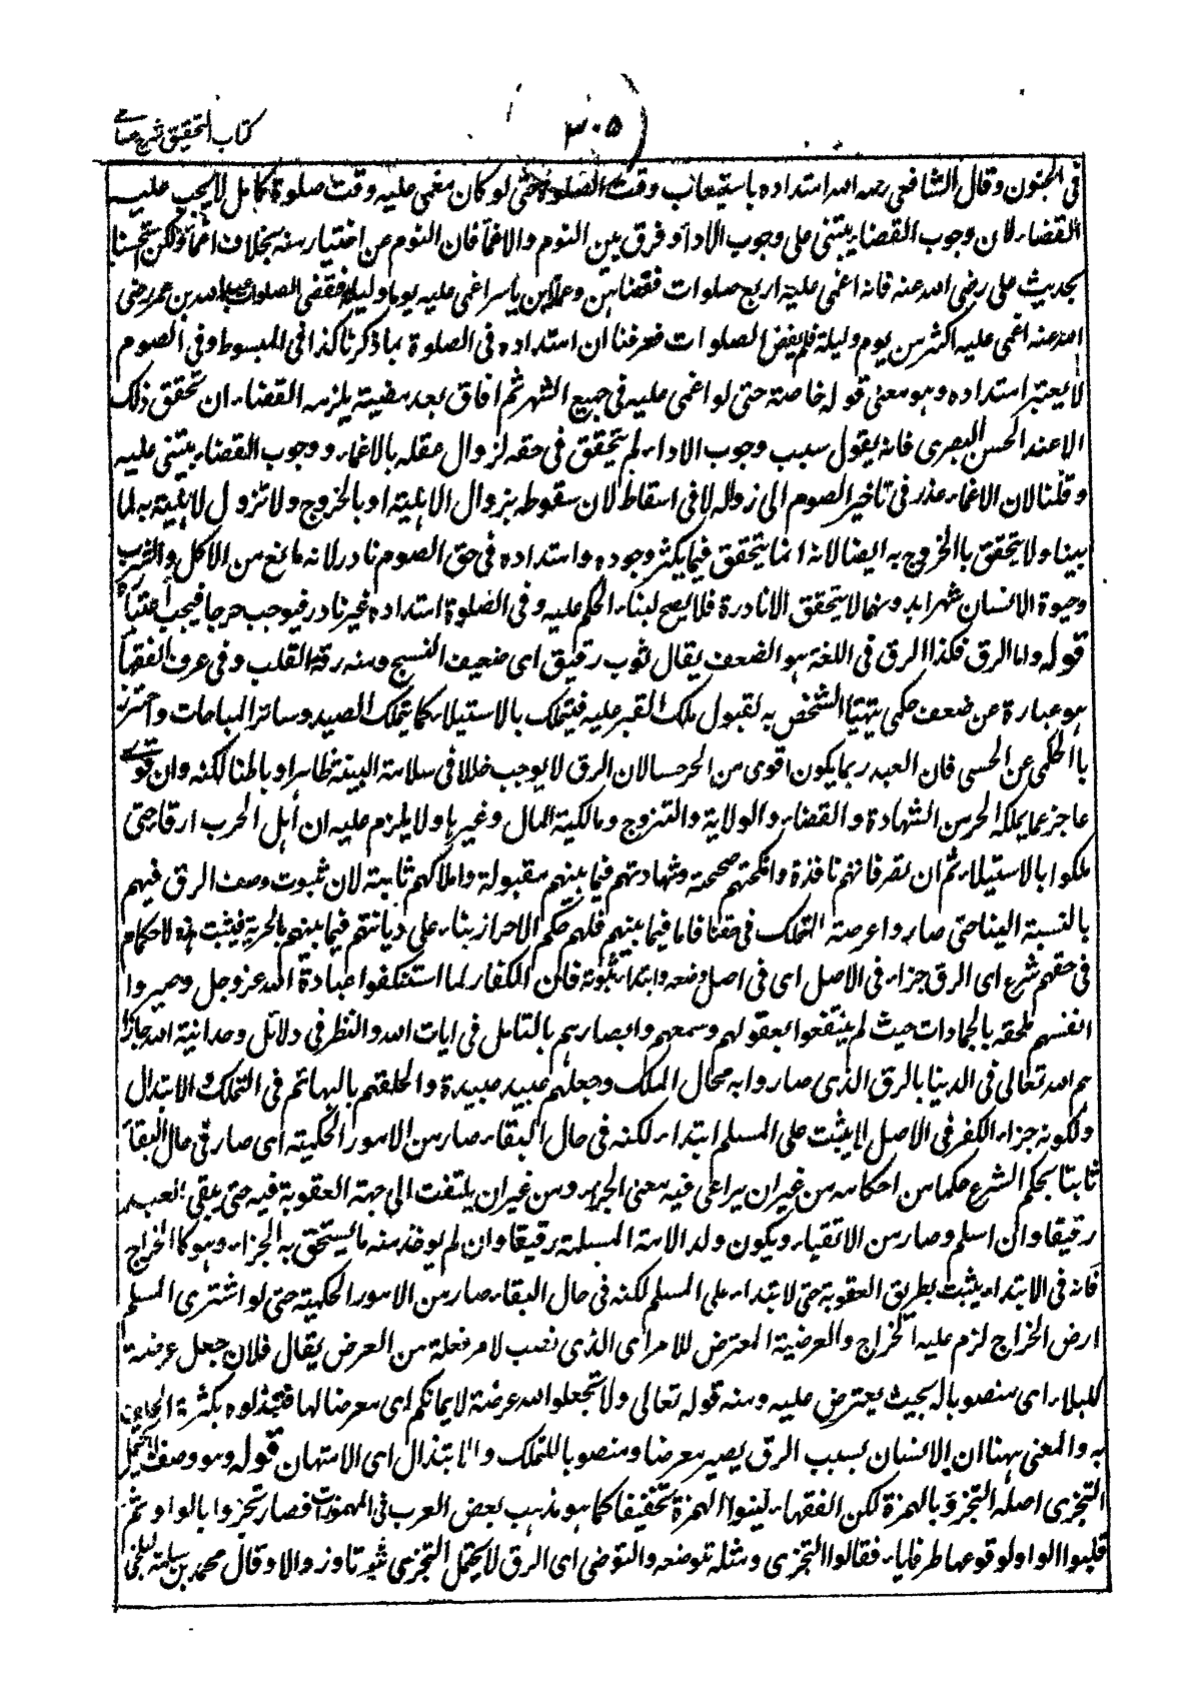 ٣٠٥
كتاب التحقيق شرح حسامى
فى الجنون وقال الشافعى رحمه الله امتداده باستيعاب وقت الصلوة حتى لو كان مغمى عليه وقت صلوة كامل لا يجب عليه
القضاء لان وجوب القضاء يبتنى على وجوب الاداء وفرق بين النوم والاغماء فان النوم عن اختيار منه بخلاف اغمائه ولكن استحسنا
بحديث على رضى الله عنه فانه اغمى عليه اربع صلوات فقضاهن وعمار بن ياسر اغمى عليه يوما وليلة فقضى الصلوات وعبدالله بن عمر رضى
الله عنه اغمى عليه اكثر من يوم وليلة فلم يقض الصلوات فعرفنا ان امتداده فى الصلوة بما ذكرنا كذا فى المبسوط وفى الصوم
لا يعتبر امتداده وهو معنى قوله خاصة حتى لو اغمى عليه فى جميع الشهر ثم افاق بعد مضيه يلزمه القضاء ان تحقق ذلك
الا عند الحسن البصرى فانه يقول سبب وجوب الاداء لم يتحقق فى حقه لزوال عقله بالاغماء ووجوب القضاء يبتنى عليه
وقلنا لان الاغماء عذر فى تاخير الصوم الى زواله لا فى اسقاط لان سقوطه بزوال الاهلية او بالخروج ولا تزول لاهلية به لما
بينا ولا يتحقق بالخروج به ايضا لانه انما يتحقق فيما يكثر وجوده وامتداده فى حق الصوم نادر لانه مانع من الاكل والشرب
وحيوة الانسان شهرا بدونهما لا يتحقق الا نادرة فلا يصح لبناء الحكم عليه وفى الصلوة امتداده غير نادر فيوجب حرجا فيجب اعتباره
قوله واما الرق فكذا الرق فى اللغة هو الضعف يقال ثوب رقيق اى ضعيف النسج ومنه رقة القلب وفى عرف الفقهاء
هو عبارة عن ضعف حكمى يتهيأ الشخص به لقبول ملك القبر عليه فيتملك بالاستيلاء كما يتملك الصيد وسائر المباحات واحترز
بالحكمى عن الحسى فان العبد ربما يكون اقوى من الحر حسا لان الرق لا يوجب خللا فى سلامة البنية ظاهرا وباطنا لكنه وان قوى
عاجز عما يملكه الحر من الشهادة والقضاء والولاية والتزوج ومالكية المال وغيرها ولا يلزم عليه ان اهل الحرب ارقاء حتى
ملكوا بالاستيلاء ثم ان تصرفاتهم نافذة وانكحتهم صحيحة وشهادتهم فيما بينهم مقبولة واملاكهم ثابتة لان ثبوت وصف الرق فيهم
بالنسبة الينا حتى صاروا عرضة التملك فى حقنا فاما فيما بينهم فلهم حكم الاحرار بناء على ديانتهم فيما بينهم بالحرية فيثبت هذه لاحكام
فى حقهم شرع اى الرق جزاء فى الاصل اى فى اصل وضعه وابتداء ثبوته فان الكفار لما استنكفوا عبادة الله عز وجل وصيروا
انفسهم ملحقة بالجمادات حيث لم ينتفعوا بعقولهم وسمعهم وابصارهم بالتامل فى ايات الله والنظر فى دلائل وحدانية الله جازا
هم الله تعالى فى الدنيا بالرق الذى صاروا به محال الملك وجعلهم عبيد عبيده والحقهم بالبهائم فى التملك والابتذال
ولكونه جزاء الكفر فى الاصل لا يثبت على المسلم ابتداء لكنه فى حال البقاء صار من الامور الحكمية اى صار فى حال البقاء
ثابتا بحكم الشرع حكما من احكامه من غير ان يراعى فيه معنى الجزاء ومن غير ان يلتفت الى جهة العقوبة فيه حتى يبقى العبد
رقيقا وان اسلم وصار من الاتقياء ويكون ولد الامة المسلمة رقيقا وان لم يوخذ منه ما يستحق به الجزاء وهو كالخراج
فانه فى الابتداء يثبت بطريق العقوبة حتى لا يبتداء على المسلم لكنه فى حال البقاء صار من الامور الحكمية حتى لو اشترى المسلم
ارض الخراج لزم عليه الخراج والعرضية المعترض للامر اى الذى نصب لامر فعلة من العرض يقال فلان جعل عرضة
للبلاء اى منصوبا له بحيث يعترض عليه ومنه قوله تعالى ولا تجعلوا الله عرضة لايمانكم اى معرضا لها فتبتذلوه بكثرة الحلف
به والمعنى ههنا ان الانسان بسبب الرق يصير معرضا ومنصوبا للتملك والابتذال اى الامتهان قوله وهو وصف لا يحتمل
التجزى اصله التجزؤ بالهمزة لكن الفقهاء لينوا الهمزة تخفيفا كما هو مذهب بعض العرب فى المهموزات فصار تجزوا بالواو ثم
قلبوا الواو لوقوعها طرفا ياء فقالوا التجزى ومثله توضه والتوضى اى الرق لا يحتمل التجزى ثبوتا وزوالا وقال محمد بن سلمة البلخى